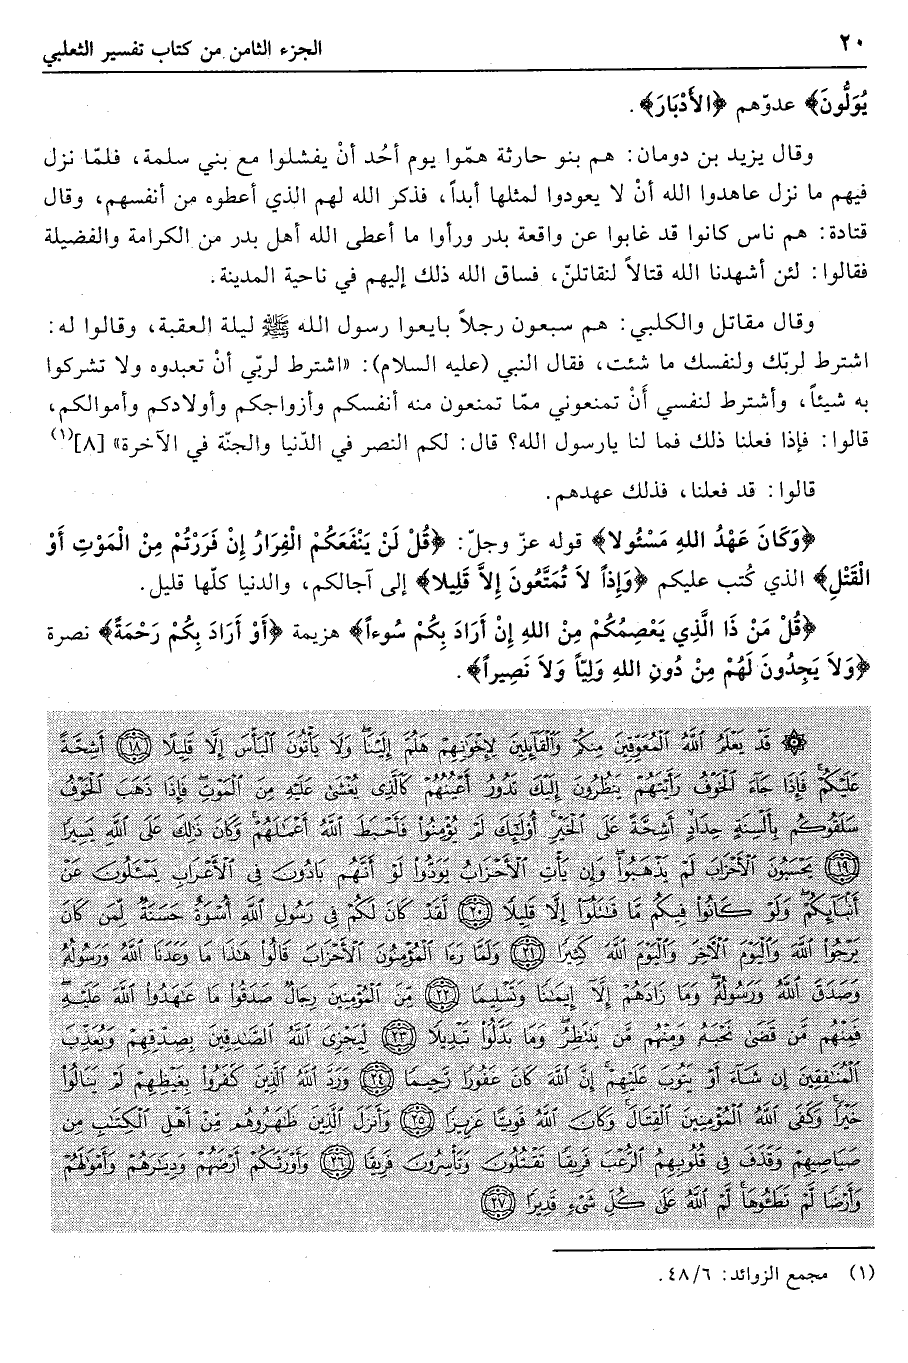 ٢٠
الجزء الثامن من كتاب تفسير الثعلبي
يُوَلُّونَ﴾ عدوّهم ﴿الأَدْبَارَ﴾.
وقال يزيد بن دومان: هم بنو حارثة همّوا يوم أُحُد أنْ يفشلوا مع بني سلمة، فلمّا نزل
فيهم ما نزل عاهدوا الله أنْ لا يعودوا لمثلها أبداً، فذكر الله لهم الذي أعطوه من أنفسهم، وقال
قتادة: هم ناس كانوا قد غابوا عن واقعة بدر ورأوا ما أعطى الله أهل بدر من الكرامة والفضيلة
فقالوا: لئن أشهدنا الله قتالاً لنقاتلنّ، فساق الله ذلك إليهم في ناحية المدينة.
وقال مقاتل والكلبي: هم سبعون رجلاً بايعوا رسول الله ﷺ ليلة العقبة، وقالوا له:
اشترط لربّك ولنفسك ما شئت، فقال النبي (عليه السلام): «اشترط لربّي أنْ تعبدوه ولا تشركوا
به شيئاً، وأشترط لنفسي أَنْ تمنعوني ممّا تمنعون منه أنفسكم وأزواجكم وأولادكم وأموالكم،
قالوا: فإذا فعلنا ذلك فما لنا يارسول الله؟ قال: لكم النصر في الدّنيا والجنّة في الآخرة» [٨](١)
قالوا: قد فعلنا، فذلك عهدهم.
﴿وَكَانَ عَهْدُ اللهِ مَسْئُولا﴾ قوله عزّ وجلّ: ﴿قُلْ لَنْ يَنْفَعَكُمْ الْفِرَارُ إِنْ فَرَرْتُمْ مِنْ الْمَوْتِ أَوْ
الْقَتْلِ﴾ الذي كُتب عليكم ﴿وَإِذاً لاَ تُمَتَّعُونَ إِلاَّ قَلِيلا﴾ إلى آجالكم، والدنيا كلّها قليل.
﴿قُلْ مَنْ ذَا الَّذِي يَعْصِمُكُمْ مِنْ اللهِ إِنْ أَرَادَ بِكُمْ سُوءاً﴾ هزيمة ﴿أَوْ أَرَادَ بِكُمْ رَحْمَةً﴾ نصرة
﴿وَلاَ يَجِدُونَ لَهُمْ مِنْ دُونِ اللهِ وَلِيّاً وَلاَ نَصِيراً﴾.
۞ قَدْ يَعْلَمُ ٱللَّهُ ٱلْمُعَوِّقِينَ مِنكُمْ وَٱلْقَآئِلِينَ لِإِخْوَٰنِهِمْ هَلُمَّ إِلَيْنَا ۖ وَلَا يَأْتُونَ ٱلْبَأْسَ إِلَّا قَلِيلًا ﴿١٨﴾ أَشِحَّةً
عَلَيْكُمْ ۖ فَإِذَا جَآءَ ٱلْخَوْفُ رَأَيْتَهُمْ يَنظُرُونَ إِلَيْكَ تَدُورُ أَعْيُنُهُمْ كَٱلَّذِى يُغْشَىٰ عَلَيْهِ مِنَ ٱلْمَوْتِ ۖ فَإِذَا ذَهَبَ ٱلْخَوْفُ
سَلَقُوكُم بِأَلْسِنَةٍ حِدَادٍ أَشِحَّةً عَلَى ٱلْخَيْرِ ۚ أُو۟لَٰٓئِكَ لَمْ يُؤْمِنُوا۟ فَأَحْبَطَ ٱللَّهُ أَعْمَٰلَهُمْ ۚ وَكَانَ ذَٰلِكَ عَلَى ٱللَّهِ يَسِيرًا
﴿١٩﴾ يَحْسَبُونَ ٱلْأَحْزَابَ لَمْ يَذْهَبُوا۟ ۖ وَإِن يَأْتِ ٱلْأَحْزَابُ يَوَدُّوا۟ لَوْ أَنَّهُم بَادُونَ فِى ٱلْأَعْرَابِ يَسْـَٔلُونَ عَنْ
أَنۢبَآئِكُمْ ۖ وَلَوْ كَانُوا۟ فِيكُم مَّا قَٰتَلُوٓا۟ إِلَّا قَلِيلًا ﴿٢٠﴾ لَّقَدْ كَانَ لَكُمْ فِى رَسُولِ ٱللَّهِ أُسْوَةٌ حَسَنَةٌ لِّمَن كَانَ
يَرْجُوا۟ ٱللَّهَ وَٱلْيَوْمَ ٱلْءَاخِرَ وَٱلْيَوْمَ ٱللَّهَ كَثِيرًا ﴿٢١﴾ وَلَمَّا رَءَا ٱلْمُؤْمِنُونَ ٱلْأَحْزَابَ قَالُوا۟ هَٰذَا مَا وَعَدَنَا ٱللَّهُ وَرَسُولُهُۥ
وَصَدَقَ ٱللَّهُ وَرَسُولُهُۥ ۚ وَمَا زَادَهُمْ إِلَّآ إِيمَٰنًا وَتَسْلِيمًا ﴿٢٢﴾ مِّنَ ٱلْمُؤْمِنِينَ رِجَالٌ صَدَقُوا۟ مَا عَٰهَدُوا۟ ٱللَّهَ عَلَيْهِ ۖ
فَمِنْهُم مَّن قَضَىٰ نَحْبَهُۥ وَمِنْهُم مَّن يَنتَظِرُ ۖ وَمَا بَدَّلُوا۟ تَبْدِيلًا ﴿٢٣﴾ لِّيَجْزِىَ ٱللَّهُ ٱلصَّٰدِقِينَ بِصِدْقِهِمْ وَيُعَذِّبَ
ٱلْمُنَٰفِقِينَ إِن شَآءَ أَوْ يَتُوبَ عَلَيْهِمْ ۚ إِنَّ ٱللَّهَ كَانَ غَفُورًا رَّحِيمًا ﴿٢٤﴾ وَرَدَّ ٱللَّهُ ٱلَّذِينَ كَفَرُوا۟ بِغَيْظِهِمْ لَمْ يَنَالُوا۟
خَيْرًا ۚ وَكَفَى ٱللَّهُ ٱلْمُؤْمِنِينَ ٱلْقِتَالَ ۚ وَكَانَ ٱللَّهُ قَوِيًّا عَزِيزًا ﴿٢٥﴾ وَأَنزَلَ ٱلَّذِينَ ظَٰهَرُوهُم مِّنْ أَهْلِ ٱلْكِتَٰبِ مِن
صَيَاصِيهِمْ وَقَذَفَ فِى قُلُوبِهِمُ ٱلرُّعْبَ فَرِيقًا تَقْتُلُونَ وَتَأْسِرُونَ فَرِيقًا ﴿٢٦﴾ وَأَوْرَثَكُمْ أَرْضَهُمْ وَدِيَٰرَهُمْ وَأَمْوَٰلَهُمْ
وَأَرْضًا لَّمْ تَطَـُٔوهَا ۚ لَمْ ٱللَّهُ عَلَىٰ كُلِّ شَىْءٍ قَدِيرًا ﴿٢٧﴾
(١) مجمع الزوائد: ٦/ ٤٨.